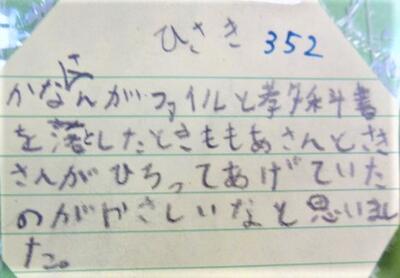 ひさき 352
かなさんがファイルと教科書
を落としたときももあさんとさき
さんがひろってあげていた
のがやさしいなと思いまし
た。